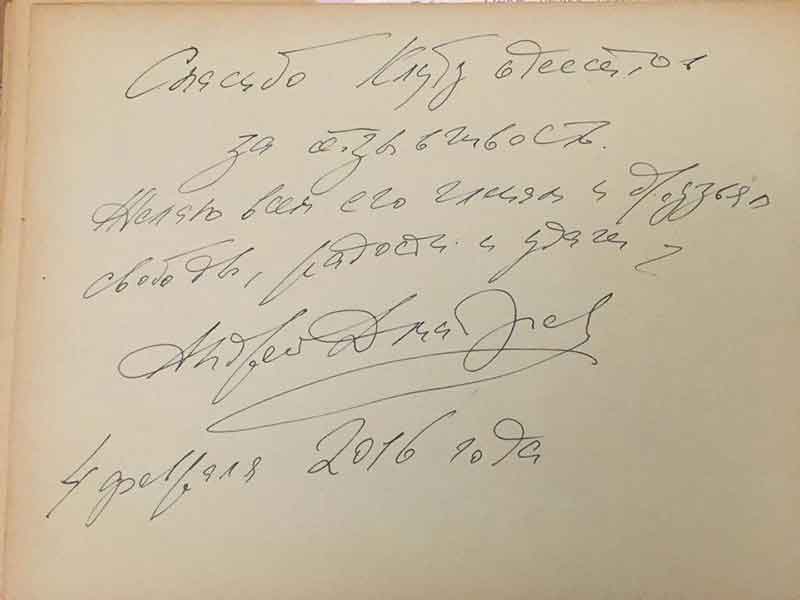 Спасибо Клубу одесситов
за отзывчивость.
Желаю всем его членам и друзьям
свободы, радости и удачи
Андрей Дмитриев
4 февраля 2016 года